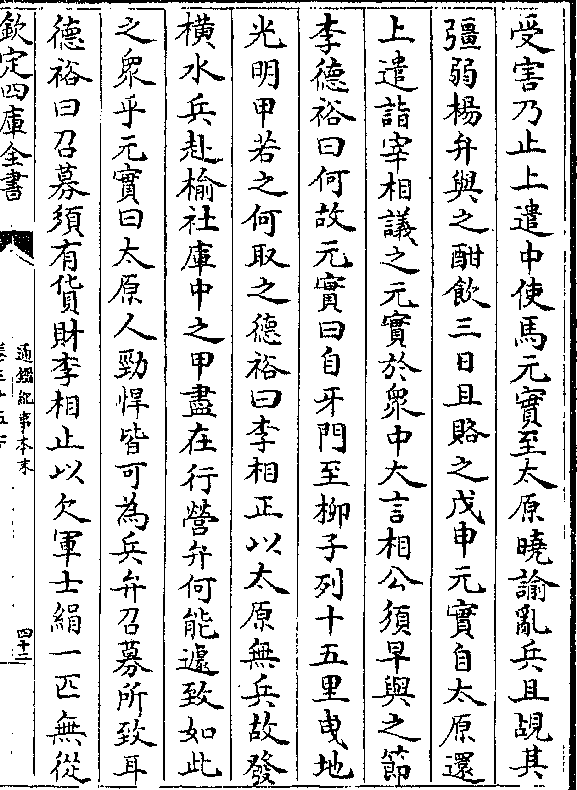 受害乃止上遣中使馬元實至太原曉諭亂兵且覘其
彊弱楊弁與之酣飲三日且賂之戊申元實自太原還
上遣詣宰相議之元實於衆中大言相公須早與之節
李德裕曰何故元實曰自牙門至柳子列十五里曳地
光明甲若之何取之德裕曰李相正以太原無兵故發
横水兵赴榆社庫中之甲盡在行營弁何能遽致如此
之衆乎元實曰太原人勁悍皆可為兵弁召募所致耳
德裕曰召募須有貨財李相止以欠軍士絹一匹無從
欽定四庫全書
通鑑紀事本末
四十二